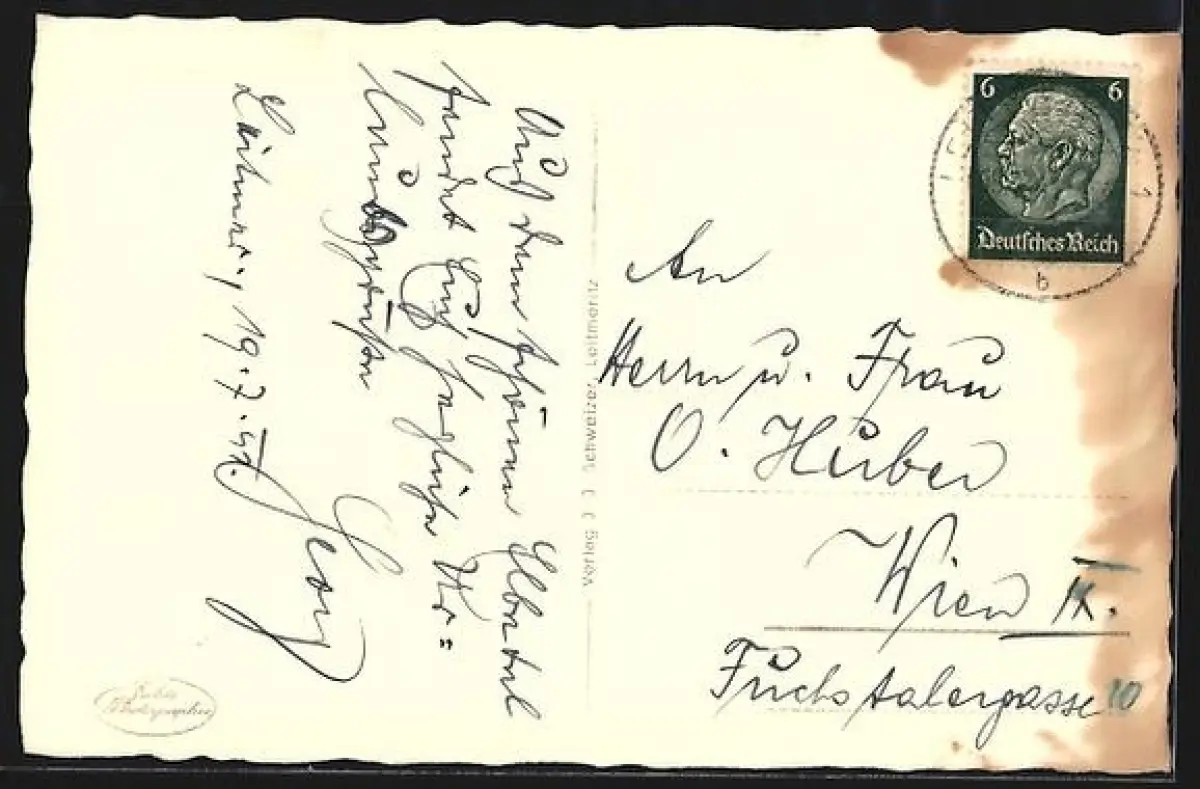 Aus dem schönen Elbetal
sendet Euch herzliche Ur=
laubsgrüsse
Georg
Leitmer., 19.7.41.
Verlag J. J. Schweizer, Leitmeritz
Echte
Photographie
6 6
Deutsches Reich
b
An
Herrn u. Frau
O. Huber
Wien IX.
Fuchstalergasse 10